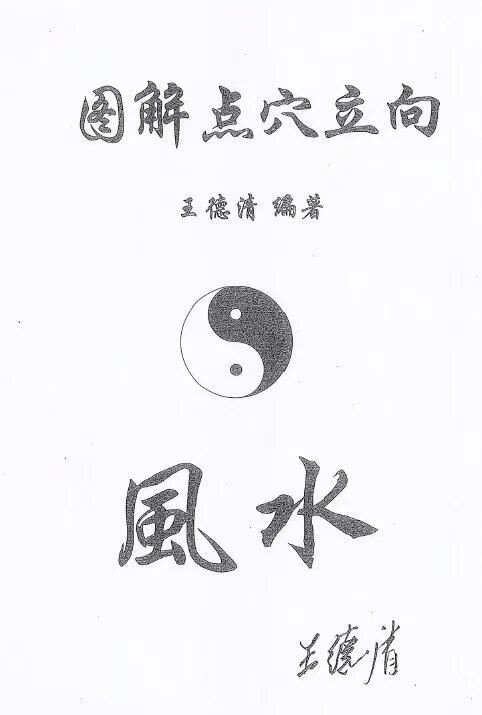 图解点穴立向
王德清 编著
風水
王德清